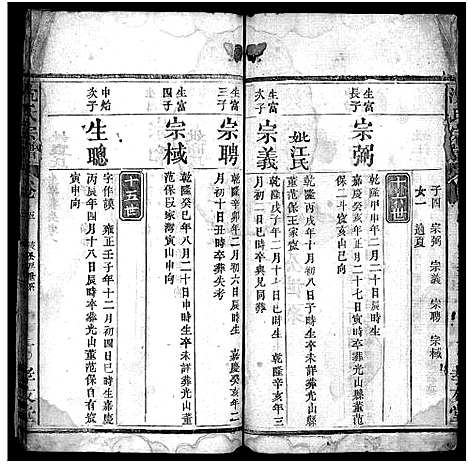 子四 宗弼 宗義 宗聘 宗棫
女一 適夏
生富
長子
宗弼
乾隆甲申年二月二十日辰時生
嘉慶癸亥年正月二十七日寅時卒葬光山縣董范
保二斗窊亥山巳向
妣江氏
乾隆丙戌年十月
董范保王家窊
生富
次子
宗義
乾隆戊子年二月十二日巳時生 乾隆辛亥年三
月初二日辰時卒與兄同葬
生富
三子
宗聘
乾隆辛卯年二月初六日辰時生 嘉慶癸亥年二
月初十日丑時卒葬失考
生富
四子
宗棫
乾隆癸巳年八月二十日寅時生卒未詳葬光山董
范保段家灣寅山申向
十五世
申始
次子
生聰
字作謨 雍正壬子年十二月初四日巳時生嘉慶
丙辰年四月十八日辰時卒葬光山董范保自有旗
寅申向
孝友堂